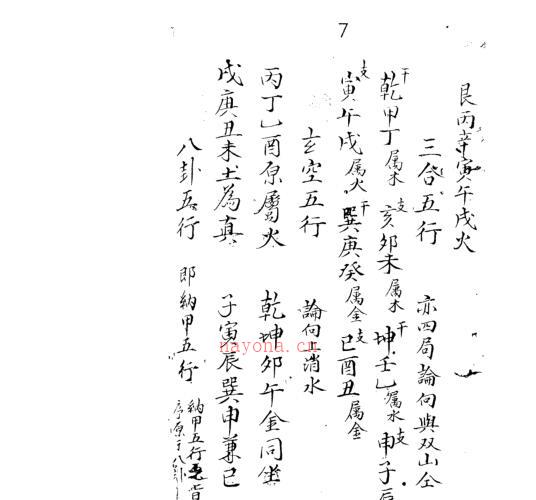 7
艮丙辛寅午戌火
三合五行 亦四局論向與双山仝
干乾甲丁属木 支亥卯未属木 干坤壬乙属水 支申子辰
支寅午戌属火 干巽庚癸属金 支巳酉丑属金
玄空五行 論向消水
丙丁乙酉原屬火 乾坤卯午金同坐
戌庚丑未土為真 子寅辰巽申兼巳
八卦五行 即納甲五行 納甲五行 序原于八卦
nayona.cn